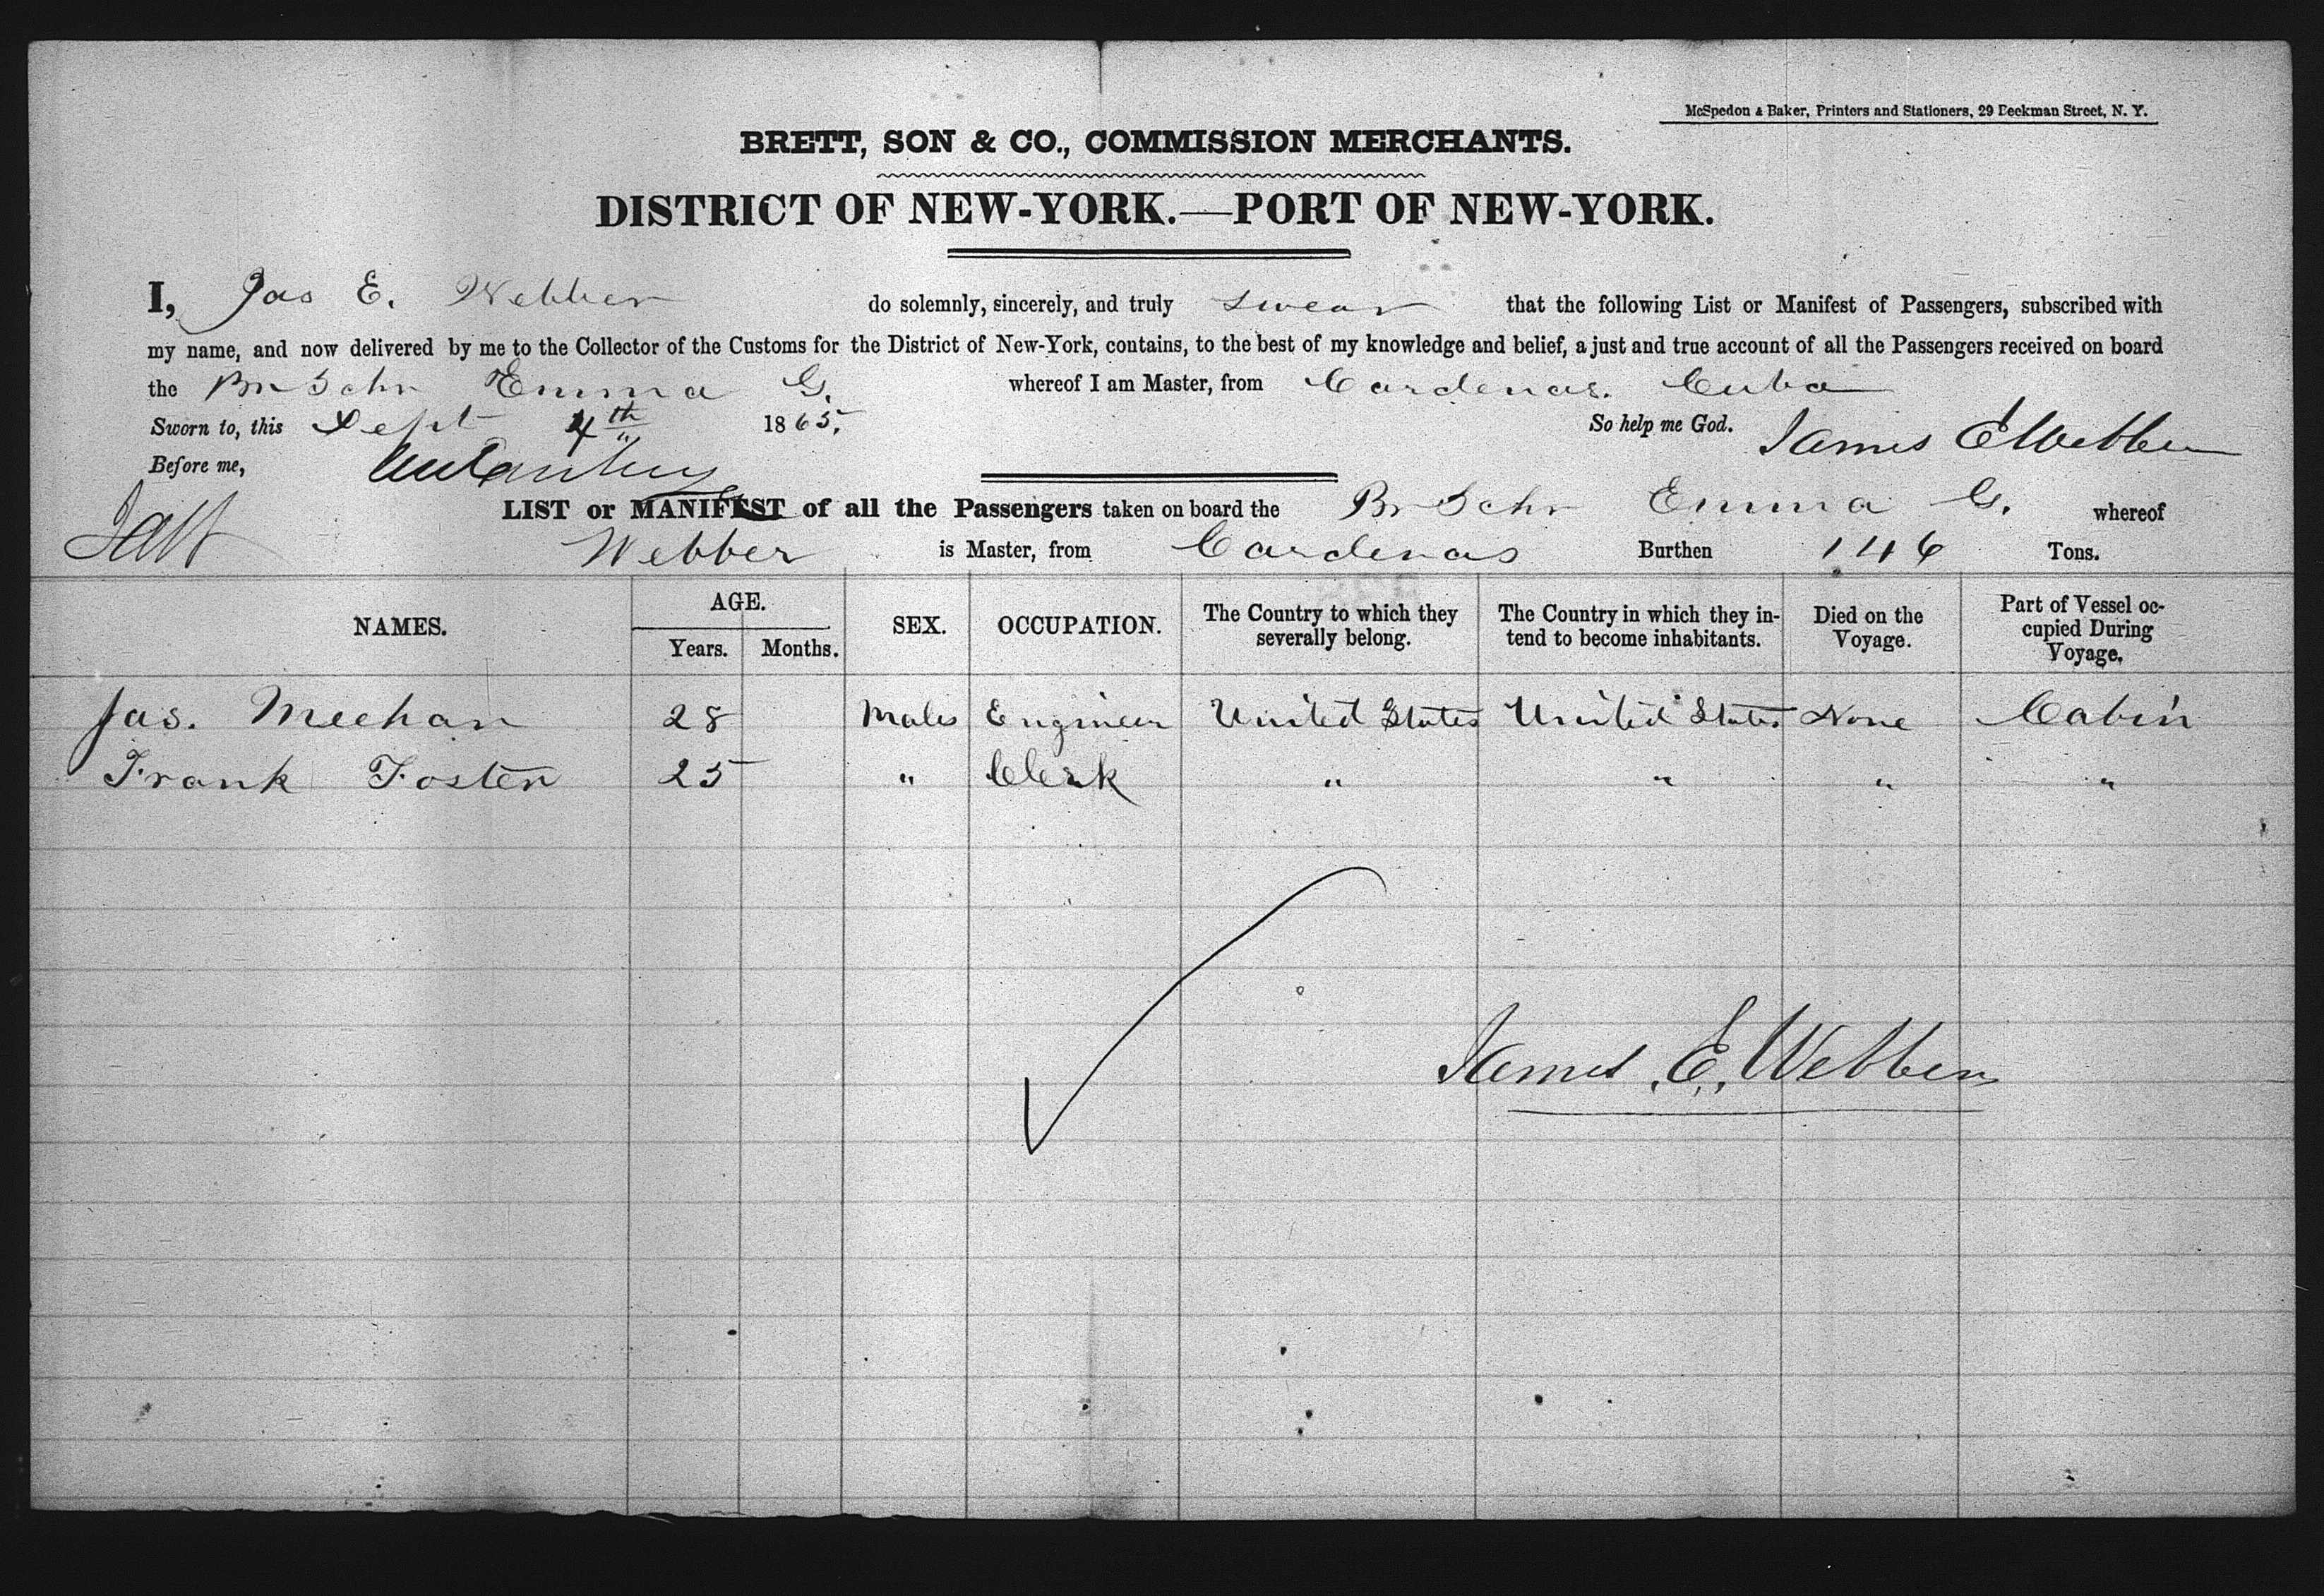 McSpedon & Baker, Printers and Stationers, 29 Beekman Street, N. Y.
BRETT, SON & CO., COMMISSION MERCHANTS.
DISTRICT OF NEW-YORK.—PORT OF NEW-YORK.
I, Jas E. Webber do solemnly, sincerely, and truly swear that the following List or Manifest of Passengers, subscribed with
my name, and now delivered by me to the Collector of the Customs for the District of New-York, contains, to the best of my knowledge and belief, a just and true account of all the Passengers received on board
the Br Schr Emma G. whereof I am Master, from Cardenas. Cuba
Sworn to, this Sept 4th 1865, So help me God. James E Webber
Before me,
LIST or MANIFEST of all the Passengers taken on board the Br Schr Emma G. whereof
Webber is Master, from Cardenas Burthen 146 Tons.
NAMES. AGE. Years. Months. SEX. OCCUPATION. The Country to which they severally belong. The Country in which they intend to become inhabitants. Died on the Voyage. Part of Vessel occupied During Voyage.
Jas. Meehan 28 Males Engineer United States United States None Cabin
Frank Foster 25 " Clerk " " " "
James. E. Webber